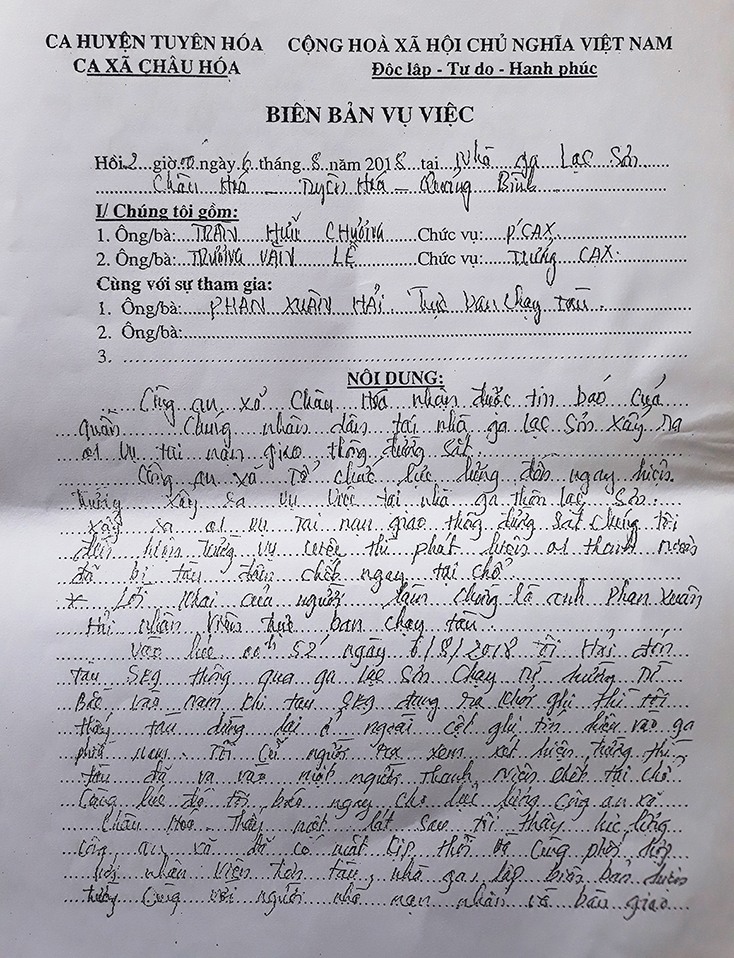 CA HUYỆN TUYÊN HÓA CỘNG HOÀ XÃ HỘI CHỦ NGHĨA VIỆT NAM
CA XÃ CHÂU HÓA Độc lập - Tự do - Hạnh phúc
BIÊN BẢN VỤ VIỆC
Hồi 2 giờ 00 ngày 6 tháng 8 năm 2018 tại Nhà ga Lạc Sơn
Châu Hoá - Tuyên Hoá - Quảng Bình
I/ Chúng tôi gồm:
1. Ông/bà: TRẦN HỮU CHƯƠNG Chức vụ: PCAX
2. Ông/bà: TRƯƠNG VĂN LÊ Chức vụ: Trưởng CAX
Cùng với sự tham gia:
1. Ông/bà: PHAN XUÂN HẢI Trực ban chạy tàu
2. Ông/bà:
3.
NỘI DUNG:
Công an xã Châu Hoá nhận được tin báo của
quần chúng nhân dân tại nhà ga lạc Sơn xảy ra
01 vụ tai nạn giao thông đường sắt.
Công an xã tổ chức lực lượng đến ngay hiện
trường xảy ra vụ việc tại nhà ga thôn lạc Sơn.
xảy ra 01 vụ tai nạn giao thông đường sắt chúng tôi
đến hiện trường vụ việc thì phát hiện 01 thanh niên
đã bị tàu đâm chết ngay tại chổ.
* Lời khai của người làm chứng là anh Phan Xuân
Hải nhân viên trực ban chạy tàu.
vào lúc 00h 52 ngày 6/8/2018 tôi Hải đón
tàu SEg thông qua ga lạc Sơn chạy từ hướng từ
Bắc vào nam khi tàu SEg đang ra khỏi ghi thì tôi
thấy tàu dừng lại ở ngoài cột ghi tín hiệu vào ga
phía nam. Tôi cử người ra xem xét hiện tượng thì
tàu đã va vào một người thanh niên chết tại chổ
Cùng lúc đó tôi báo ngay cho lực lượng công an xã
Châu Hoá. Thấy một lát sau tôi thấy lực lượng
công an xã đã có mặt kịp thời để cùng phối hợp
với nhân viên trên tàu, nhà ga, lập biên bản hiện
trường cùng với người nhà nạn nhân và bàn giao